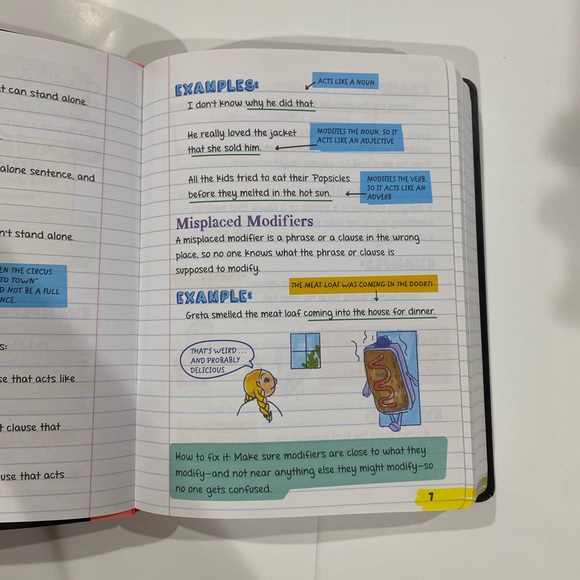 t can stand alone.
alone sentence, and
n't stand alone.
EN THE CIRCUS
TO TOWN"
D NOT BE A FULL
NCE.
s:
se that acts like
t clause that
use that acts
EXAMPLES:
ACTS LIKE A NOUN
I don't know why he did that.
He really loved the jacket
that she sold him.
MODIFIES THE NOUN, SO IT
ACTS LIKE AN ADJECTIVE
All the kids tried to eat their Popsicles
before they melted in the hot sun.
MODIFIES THE VERB,
SO IT ACTS LIKE AN
ADVERB
Misplaced Modifiers
A misplaced modifier is a phrase or a clause in the wrong
place, so no one knows what the phrase or clause is
supposed to modify.
THE MEAT LOAF WAS COMING IN THE DOOR?!
EXAMPLE:
Greta smelled the meat loaf coming into the house for dinner.
THAT'S WEIRD . . .
AND PROBABLY
DELICIOUS.
How to fix it: Make sure modifiers are close to what they
modify—and not near anything else they might modify—so
no one gets confused.
7